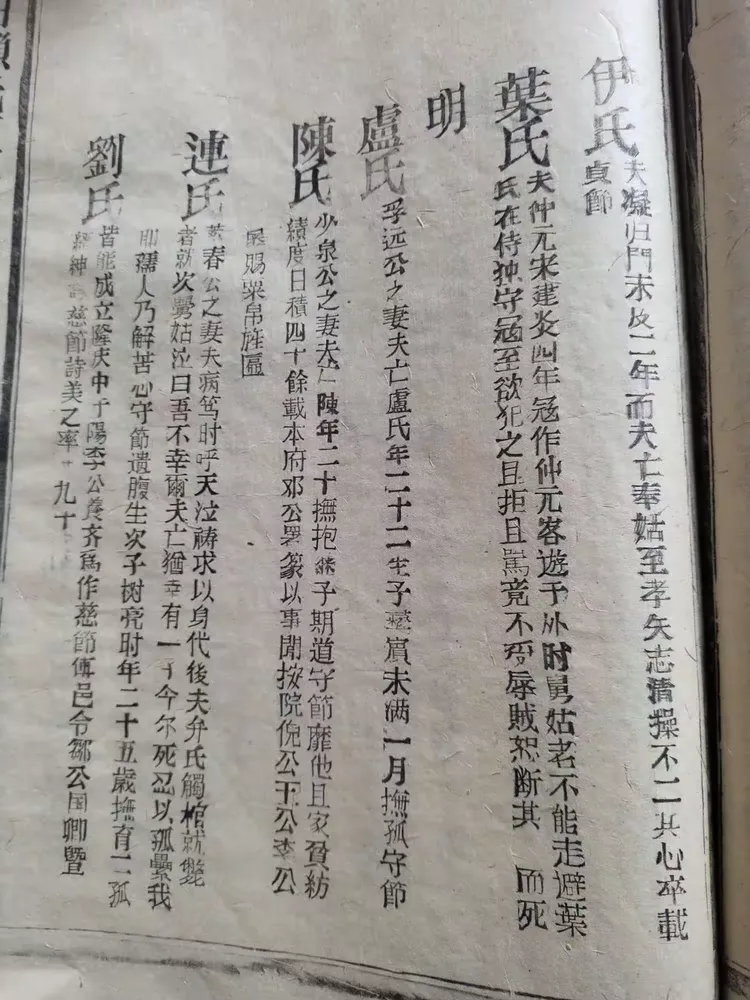 伊氏
夫凝归門未及二年而夫亡奉姑至孝矢志清操不二其心卒載
貞節
葉氏
夫仲元宋建炎四年冦作仲元客遊于外时舅姑老不能走避葉
氏在侍独守冦至欲犯之且拒且罵竟不受辱賊怒断其 而死
明
盧氏
孚远公之妻夫亡盧氏年二十二生子 賔未满一月撫孤守節
陳氏
少泉公之妻夫亡陳年二十撫抱 子期道守節靡他且家貧紡
績度日積四十餘載本府邓公署篆以事聞按院倪公王公李公
賜粟帛旌匾
連氏
春公之妻夫病笃时呼天泣祷求以身代後夫弁氏觸棺就斃
者就次覺姑泣曰吾不幸爾夫亡猶幸有一子今尔死忍以孤纍我
耶孺人乃解苦心守節遺腹生次子树亮时年二十五歲撫育二孤
劉氏
皆能成立隆庆中于陽李公養齐爲作慈節傳邑令鄒公国卿暨
紳 慈節詩美之率 九十